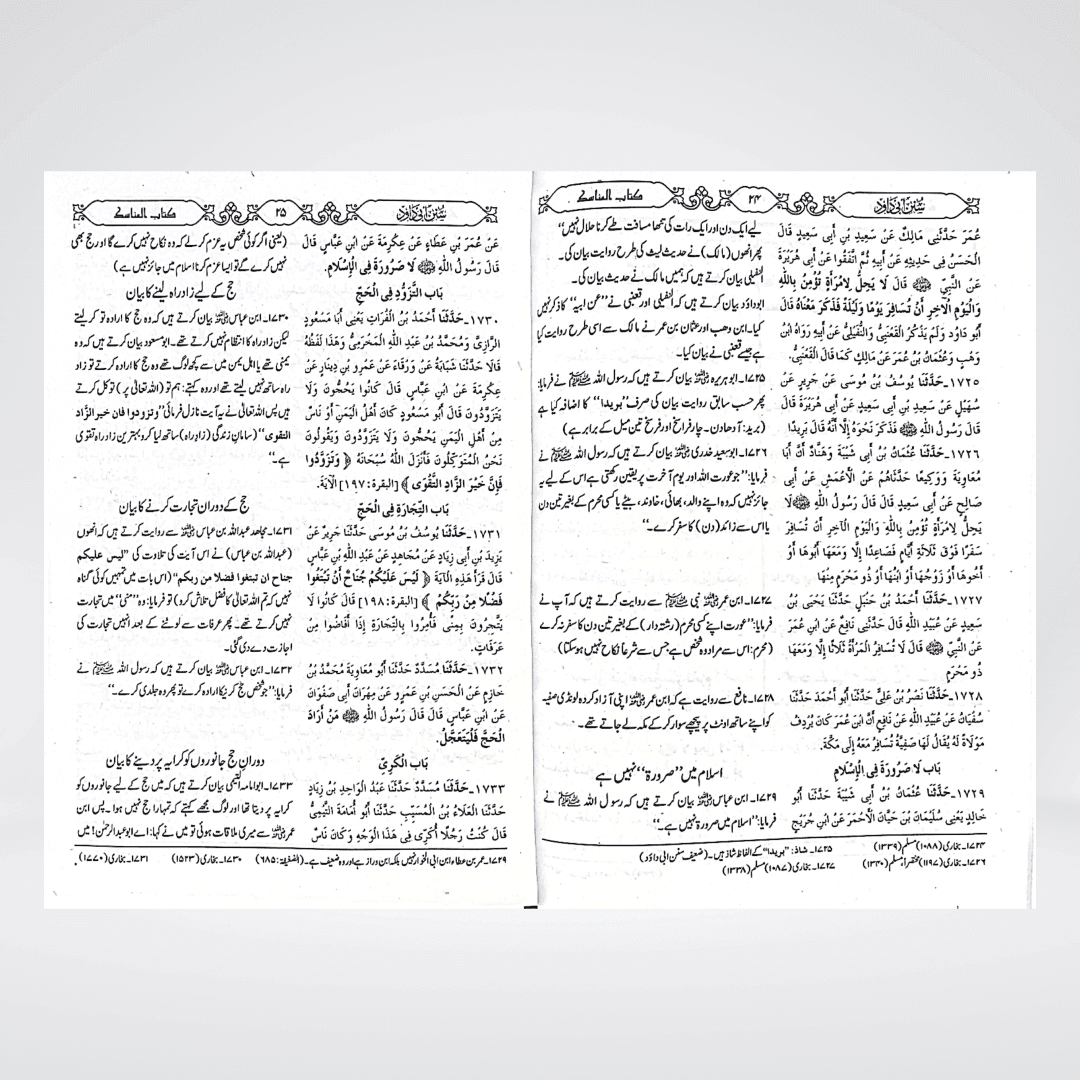 سنن ابی داؤد
۲۴
کتاب المناسک
عُمَرَ حَدَّثَنِي مَالِكٌ عَنْ سَعِيدِ بْنِ أَبِي سَعِيدٍ قَالَ
الْحَسَنُ فِي حَدِيثِهِ عَنْ أَبِيهِ ثُمَّ اتَّفَقُوا عَنْ أَبِي هُرَيْرَةَ
عَنِ النَّبِيِّ ﷺ قَالَ لَا يَحِلُّ لِامْرَأَةٍ تُؤْمِنُ بِاللَّهِ
وَالْيَوْمِ الْآخِرِ أَنْ تُسَافِرَ يَوْمًا وَلَيْلَةً فَذَكَرَ مَعْنَاهُ قَالَ
أَبُو دَاوُد وَلَمْ يَذْكُرْ الْقَعْنَبِيُّ وَالنُّفَيْلِيُّ عَنْ أَبِيهِ رَوَاهُ ابْنُ
وَهْبٍ وَعُثْمَانُ بْنُ عُمَرَ عَنْ مَالِكٍ كَمَا قَالَ الْقَعْنَبِيُّ.
۱۷۲۵۔حَدَّثَنَا يُوسُفُ بْنُ مُوسَى عَنْ جَرِيرٍ عَنْ
سُهَيْلٍ عَنْ سَعِيدِ بْنِ أَبِي سَعِيدٍ عَنْ أَبِي هُرَيْرَةَ قَالَ
قَالَ رَسُولُ اللَّهِ ﷺ فَذَكَرَ نَحْوَهُ إِلَّا أَنَّهُ قَالَ بَرِيدًا
۱۷۲۶۔حَدَّثَنَا عُثْمَانُ بْنُ أَبِي شَيْبَةَ وَهَنَّادٌ أَنَّ أَبَا
مُعَاوِيَةَ وَوَكِيعًا حَدَّثَاهُمْ عَنْ الْأَعْمَشِ عَنْ أَبِي
صَالِحٍ عَنْ أَبِي سَعِيدٍ قَالَ قَالَ رَسُولُ اللَّهِ ﷺ لَا
يَحِلُّ لِامْرَأَةٍ تُؤْمِنُ بِاللَّهِ وَالْيَوْمِ الْآخِرِ أَنْ تُسَافِرَ
سَفَرًا فَوْقَ ثَلَاثَةِ أَيَّامٍ فَصَاعِدًا إِلَّا وَمَعَهَا أَبُوهَا أَوْ
أَخُوهَا أَوْ زَوْجُهَا أَوْ ابْنُهَا أَوْ ذُو مَحْرَمٍ مِنْهَا
۱۷۲۷۔حَدَّثَنَا أَحْمَدُ بْنُ حَنْبَلٍ حَدَّثَنَا يَحْيَى بْنُ
سَعِيدٍ عَنْ عُبَيْدِ اللَّهِ قَالَ حَدَّثَنِي نَافِعٌ عَنْ ابْنِ عُمَرَ
عَنْ النَّبِيِّ ﷺ قَالَ لَا تُسَافِرُ الْمَرْأَةُ ثَلَاثًا إِلَّا وَمَعَهَا
ذُو مَحْرَمٍ
۱۷۲۸۔حَدَّثَنَا نَصْرُ بْنُ عَلِيٍّ حَدَّثَنَا أَبُو أَحْمَدَ حَدَّثَنَا
سُفْيَانُ عَنْ عُبَيْدِ اللَّهِ عَنْ نَافِعٍ أَنَّ ابْنَ عُمَرَ كَانَ يُرْدِفُ
مَوْلَاةً لَهُ يُقَالُ لَهَا صَفِيَّةُ تُسَافِرُ مَعَهُ إِلَى مَكَّةَ.
بَاب لَا صَرُورَةَ فِي الْإِسْلَامِ
۱۷۲۹۔حَدَّثَنَا عُثْمَانُ بْنُ أَبِي شَيْبَةَ حَدَّثَنَا أَبُو
خَالِدٍ يَعْنِي سُلَيْمَانَ بْنَ حَيَّانَ الْأَحْمَرَ عَنْ ابْنِ جُرَيْجٍ
لیے ایک دن اور ایک رات کی تنہا مسافت طے کرنا حلال نہیں‘‘
پھر انھوں (مالک) نے حدیث لیث کی طرح روایت بیان کی۔
النفیلی بیان کرتے ہیں کہ ہمیں مالک نے حدیث بیان کی۔
ابوداؤد بیان کرتے ہیں کہ النفیلی اور قعنبی نے ’’عن ابیہ‘‘ کا ذکر نہیں
کیا۔ ابن وھب اور عثمان بن عمر نے مالک سے اسی طرح روایت کیا
ہے جیسے قعنبی نے بیان کیا۔
۱۷۲۵۔ابوہریرہؓ بیان کرتے ہیں کہ رسول اللہ ﷺ نے فرمایا:
پھر حسب سابق روایت بیان کی صرف ’’بریدا‘‘ کا اضافہ کیا ہے
(برید: آدھا دن۔ چار فراسخ اور فرسخ تین میل کے برابر ہے)
۱۷۲۶۔ابوسعید خدریؓ بیان کرتے ہیں کہ رسول اللہ ﷺ نے
فرمایا: ’’جو عورت اللہ اور یوم آخرت پر یقین رکھتی ہے اس کے لیے یہ
جائز نہیں کہ وہ اپنے والد، بھائی، خاوند، بیٹے یا کسی محرم کے بغیر تین دن
یا اس سے زائد (دن) کا سفر کرے۔‘‘
۱۷۲۷۔ابن عمرؓ نبی ﷺ سے روایت کرتے ہیں کہ آپ نے
فرمایا: ’’عورت اپنے کسی محرم (رشتہ دار) کے بغیر تین دن کا سفر نہ کرے
(محرم: اس سے مراد وہ شخص ہے جس سے شرعاً نکاح نہیں ہو سکتا)
۱۷۲۸۔نافع سے روایت ہے کہ ابن عمرؓ اپنی آزاد کردہ لونڈی صفیہ
کو اپنے ساتھ اونٹ پر پیچھے سوار کر کے مکہ لے جاتے تھے۔
اسلام میں ’’صرورۃ‘‘ نہیں ہے
۱۷۲۹۔ابن عباسؓ بیان کرتے ہیں کہ رسول اللہ ﷺ نے
فرمایا: ’’اسلام میں صرورۃ نہیں ہے۔‘‘
۱۷۲۴۔بخاری (۱۰۸۸) مسلم (۱۳۳۹)
۱۷۲۵۔شاذ: ’’بریدا‘‘ کے الفاظ شاذ ہیں۔ (ضعیف سنن ابی داؤد)
۱۷۲۶۔بخاری (۱۱۹۷) مختصراً مسلم (۱۳۴۰)
۱۷۲۷۔بخاری (۱۰۸۷) مسلم (۱۳۳۸)
سنن ابی داؤد
۲۵
کتاب المناسک
عَنْ عُمَرَ بْنِ عَطَاءٍ عَنْ عِكْرِمَةَ عَنْ ابْنِ عَبَّاسٍ قَالَ
قَالَ رَسُولُ اللَّهِ ﷺ لَا صَرُورَةَ فِي الْإِسْلَامِ.
بَاب التَّزَوُّدِ فِي الْحَجِّ
۱۷۳۰۔حَدَّثَنَا أَحْمَدُ بْنُ الْفُرَاتِ يَعْنِي أَبَا مَسْعُودٍ
الرَّازِيَّ وَمُحَمَّدُ بْنُ عَبْدِ اللَّهِ الْمَخْرَمِيُّ وَهَذَا لَفْظُهُ
قَالَا حَدَّثَنَا شَبَابَةُ عَنْ وَرْقَاءَ عَنْ عَمْرِو بْنِ دِينَارٍ عَنْ
عِكْرِمَةَ عَنْ ابْنِ عَبَّاسٍ قَالَ كَانُوا يَحُجُّونَ وَلَا
يَتَزَوَّدُونَ قَالَ أَبُو مَسْعُودٍ كَانَ أَهْلُ الْيَمَنِ أَوْ نَاسٌ
مِنْ أَهْلِ الْيَمَنِ يَحُجُّونَ وَلَا يَتَزَوَّدُونَ وَيَقُولُونَ
نَحْنُ الْمُتَوَكِّلُونَ فَأَنْزَلَ اللَّهُ سُبْحَانَهُ ﴿ وَتَزَوَّدُوا
فَإِنَّ خَيْرَ الزَّادِ التَّقْوَى ﴾ [البقرة:۱۹۷] الْآيَةَ.
بَاب التِّجَارَةِ فِي الْحَجِّ
۱۷۳۱۔حَدَّثَنَا يُوسُفُ بْنُ مُوسَى حَدَّثَنَا جَرِيرٌ عَنْ
يَزِيدَ بْنِ أَبِي زِيَادٍ عَنْ مُجَاهِدٍ عَنْ عَبْدِ اللَّهِ بْنِ عَبَّاسٍ
قَالَ قَرَأَ هَذِهِ الْآيَةَ ﴿ لَيْسَ عَلَيْكُمْ جُنَاحٌ أَنْ تَبْتَغُوا
فَضْلًا مِنْ رَبِّكُمْ ﴾ [البقرة:۱۹۸] قَالَ كَانُوا لَا
يَتَّجِرُونَ بِمِنًى فَأُمِرُوا بِالتِّجَارَةِ إِذَا أَفَاضُوا مِنْ
عَرَفَاتٍ.
۱۷۳۲۔حَدَّثَنَا مُسَدَّدٌ حَدَّثَنَا أَبُو مُعَاوِيَةَ مُحَمَّدُ بْنُ
خَازِمٍ عَنْ الْحَسَنِ بْنِ عَمْرٍو عَنْ مِهْرَانَ أَبِي صَفْوَانَ
عَنْ ابْنِ عَبَّاسٍ قَالَ قَالَ رَسُولُ اللَّهِ ﷺ مَنْ أَرَادَ
الْحَجَّ فَلْيَتَعَجَّلْ.
بَاب الْكَرِيِّ
۱۷۳۳۔حَدَّثَنَا مُسَدَّدٌ حَدَّثَنَا عَبْدُ الْوَاحِدِ بْنُ زِيَادٍ
حَدَّثَنَا الْعَلَاءُ بْنُ الْمُسَيَّبِ حَدَّثَنَا أَبُو أُمَامَةَ التَّيْمِيُّ
قَالَ كُنْتُ رَجُلًا أُكَرِّي فِي هَذَا الْوَجْهِ وَكَانَ نَاسٌ
(یعنی اگر کوئی شخص یہ عزم کر لے کہ وہ نکاح نہیں کرے گا اور حج بھی
نہیں کرے گا تو ایسا عزم کرنا اسلام میں جائز نہیں ہے)
حج کے لیے زادراہ لینے کا بیان
۱۷۳۰۔ابن عباسؓ بیان کرتے ہیں کہ وہ حج کا ارادہ تو کر لیتے
لیکن زادراہ کا انتظام نہیں کرتے تھے۔ ابومسعود بیان کرتے ہیں کہ وہ
یمنی تھے یا اھل یمن میں سے کچھ لوگ تھے وہ حج کا ارادہ کرتے تو زاد
راہ ساتھ نہیں لیتے تھے اور وہ کہتے: ہم تو (اللہ تعالیٰ پر) توکل کرتے
ہیں پس اللہ تعالیٰ نے یہ آیت نازل فرمائی ’’وتزودوا فان خیر الزاد
التقوی‘‘ (سامان زندگی (زادراہ) ساتھ لیا کرو بہترین زادراہ تقوی
ہے۔‘‘
حج کے دوران تجارت کرنے کا بیان
۱۷۳۱۔مجاھد عبداللہ بن عباسؓ سے روایت کرتے ہیں کہ انھوں
(عبداللہ بن عباس) نے اس آیت کی تلاوت کی ’’لیس علیکم
جناح ان تبتغوا فضلا من ربکم‘‘ (اس بات میں تمہیں کوئی گناہ
نہیں کہ تم اللہ تعالیٰ کا فضل تلاش کرو) تو فرمایا: وہ ’’منیٰ‘‘ میں تجارت
نہیں کرتے تھے۔ پھر عرفات سے لوٹنے کے بعد انہیں تجارت کی
اجازت دے دی گئی۔
۱۷۳۲۔ابن عباسؓ بیان کرتے ہیں کہ رسول اللہ ﷺ نے
فرمایا: ’’جو شخص حج کرنیکا ارادہ کرے تو پھر وہ جلدی کرے۔‘‘
دوران حج جانوروں کو کرایہ پر دینے کا بیان
۱۷۳۳۔ابوامامہ التیمی بیان کرتے ہیں کہ میں حج کے لیے جانوروں کو
کرایہ پر دیتا تھا اور لوگ مجھے کہتے کہ تمہارا حج نہیں ہوا۔ پس ابن
عمرؓ سے میری ملاقات ہوئی تو میں نے کہا: اے ابوعبدالرحمٰن! میں
۱۷۲۹۔عمر بن عطاء ابن ابی الخوار نہیں بلکہ ابن وراز ہے اور وہ ضعیف ہے۔ (الضعیفہ:۶۸۵)
۱۷۳۰۔بخاری (۱۵۲۳)
۱۷۳۱۔بخاری (۱۷۷۰)